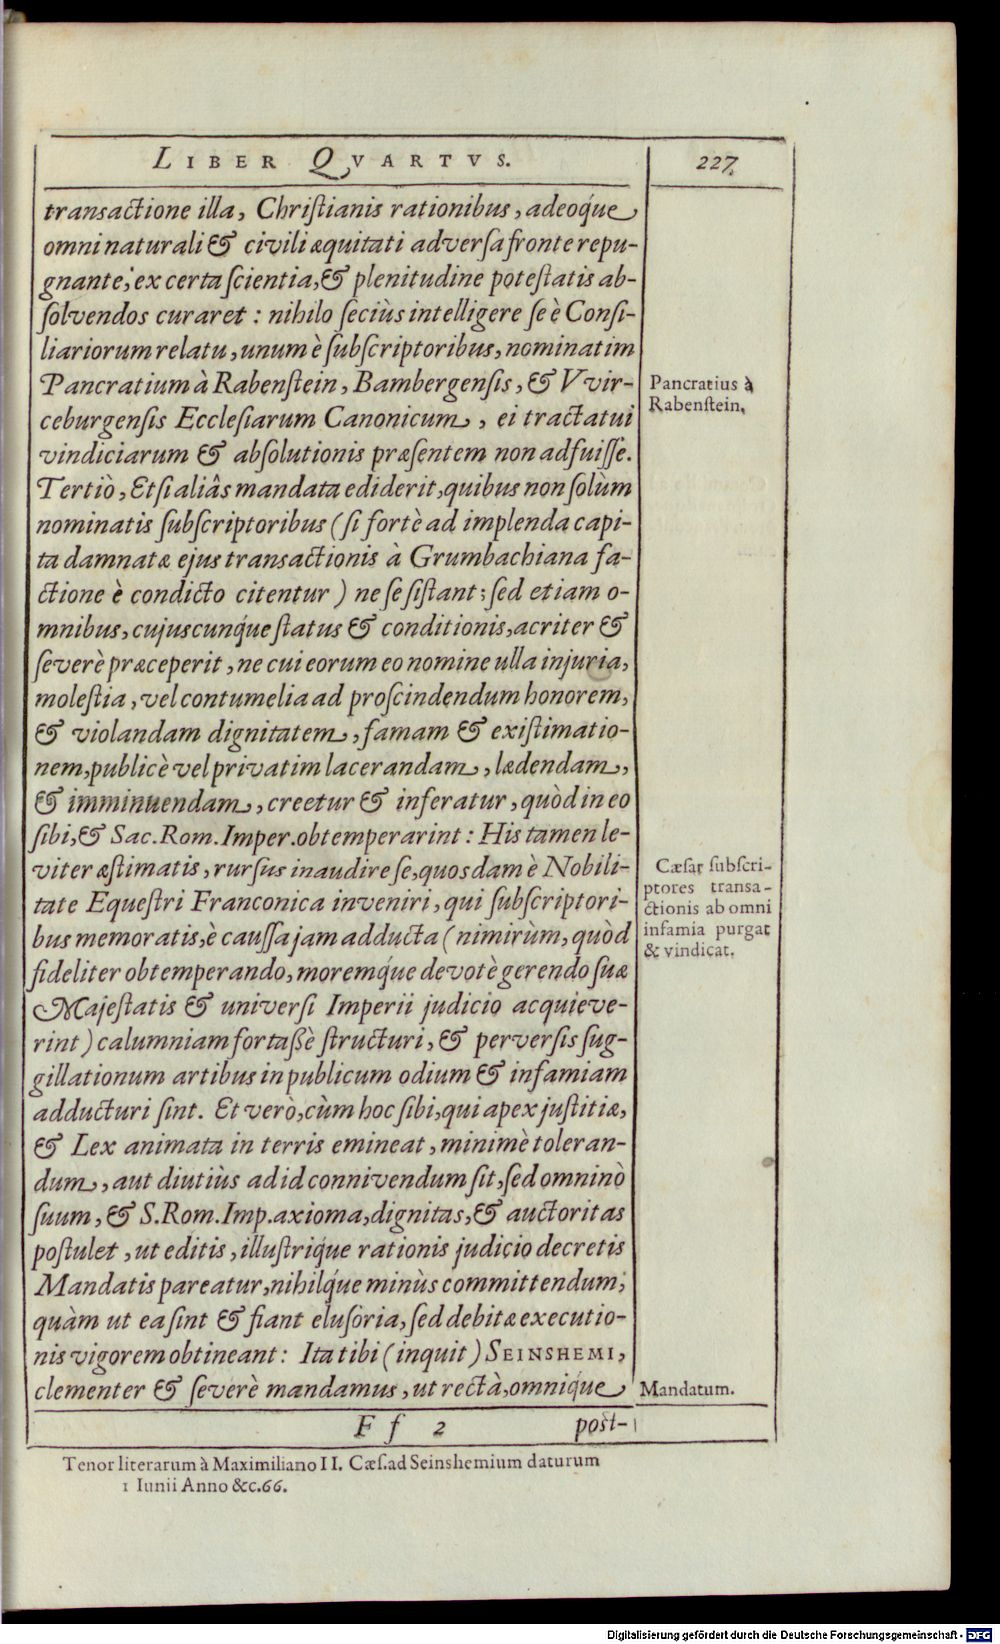 LIBER QVARTVS.
227.
transactione illa, Christianis rationibus, adeoq́ue
omni naturali & civili æquitati adversa fronte repu-
gnante; ex certa scientia, & plenitudine potestatis ab-
solvendos curaret : nihilo seciùs intelligere se è Consi-
liariorum relatu, unum è subscriptoribus, nominatim
Pancratium à Rabenstein, Bambergensis, & Vvir-
ceburgensis Ecclesiarum Canonicum, ei tractatui
vindiciarum & absolutionis præsentem non adfuisse.
Tertiò, Etsi aliâs mandata ediderit, quibus non solùm
nominatis subscriptoribus (si fortè ad implenda capi-
ta damnatæ ejus transactionis à Grumbachiana fa-
ctione è condicto citentur) ne se sistant; sed etiam o-
mnibus, cujuscunq́ue status & conditionis, acriter &
severè præceperit, ne cui eorum eo nomine ulla injuria,
molestia, vel contumelia ad proscindendum honorem,
& violandam dignitatem, famam & existimatio-
nem, publicè vel privatim lacerandam, lædendam,
& imminuendam, creetur & inferatur, quòd in eo
sibi, & Sac. Rom. Imper. obtemperarint : His tamen le-
viter æstimatis, rursus inaudire se, quosdam è Nobili-
tate Equestri Franconica inveniri, qui subscriptori-
bus memoratis, è caussa jam adducta (nimirùm, quòd
fideliter obtemperando, moremq́ue devotè gerendo suæ
Majestatis & universi Imperii judicio acquieve-
rint) calumniam fortaßè structuri, & perversis sug-
gillationum artibus in publicum odium & infamiam
adducturi sint. Et verò, cùm hoc sibi, qui apex justitiæ,
& Lex animata in terris emineat, minimè toleran-
dum, aut diutiùs ad id connivendum sit, sed omninò
suum, & S. Rom. Imp. axioma, dignitas, & auctoritas
postulet, ut editis, illustriq́ue rationis judicio decretis
Mandatis pareatur, nihilq́ue minùs committendum,
quàm ut ea sint & fiant elusoria, sed debitæ executio-
nis vigorem obtineant : Ita tibi (inquit) SEINSHEMI,
clementer & severè mandamus, ut rectà, omniq́ue
Pancratius à
Rabenstein.
Cæsar subscri-
ptores transa-
ctionis ab omni
infamia purgat
& vindicat.
Mandatum.
Ff 2
post-
Tenor literarum à Maximiliano II. Cæs. ad Seinshemium daturum
1 Iunii Anno &c. 66.
Digitalisierung gefördert durch die Deutsche Forschungsgemeinschaft - DFG